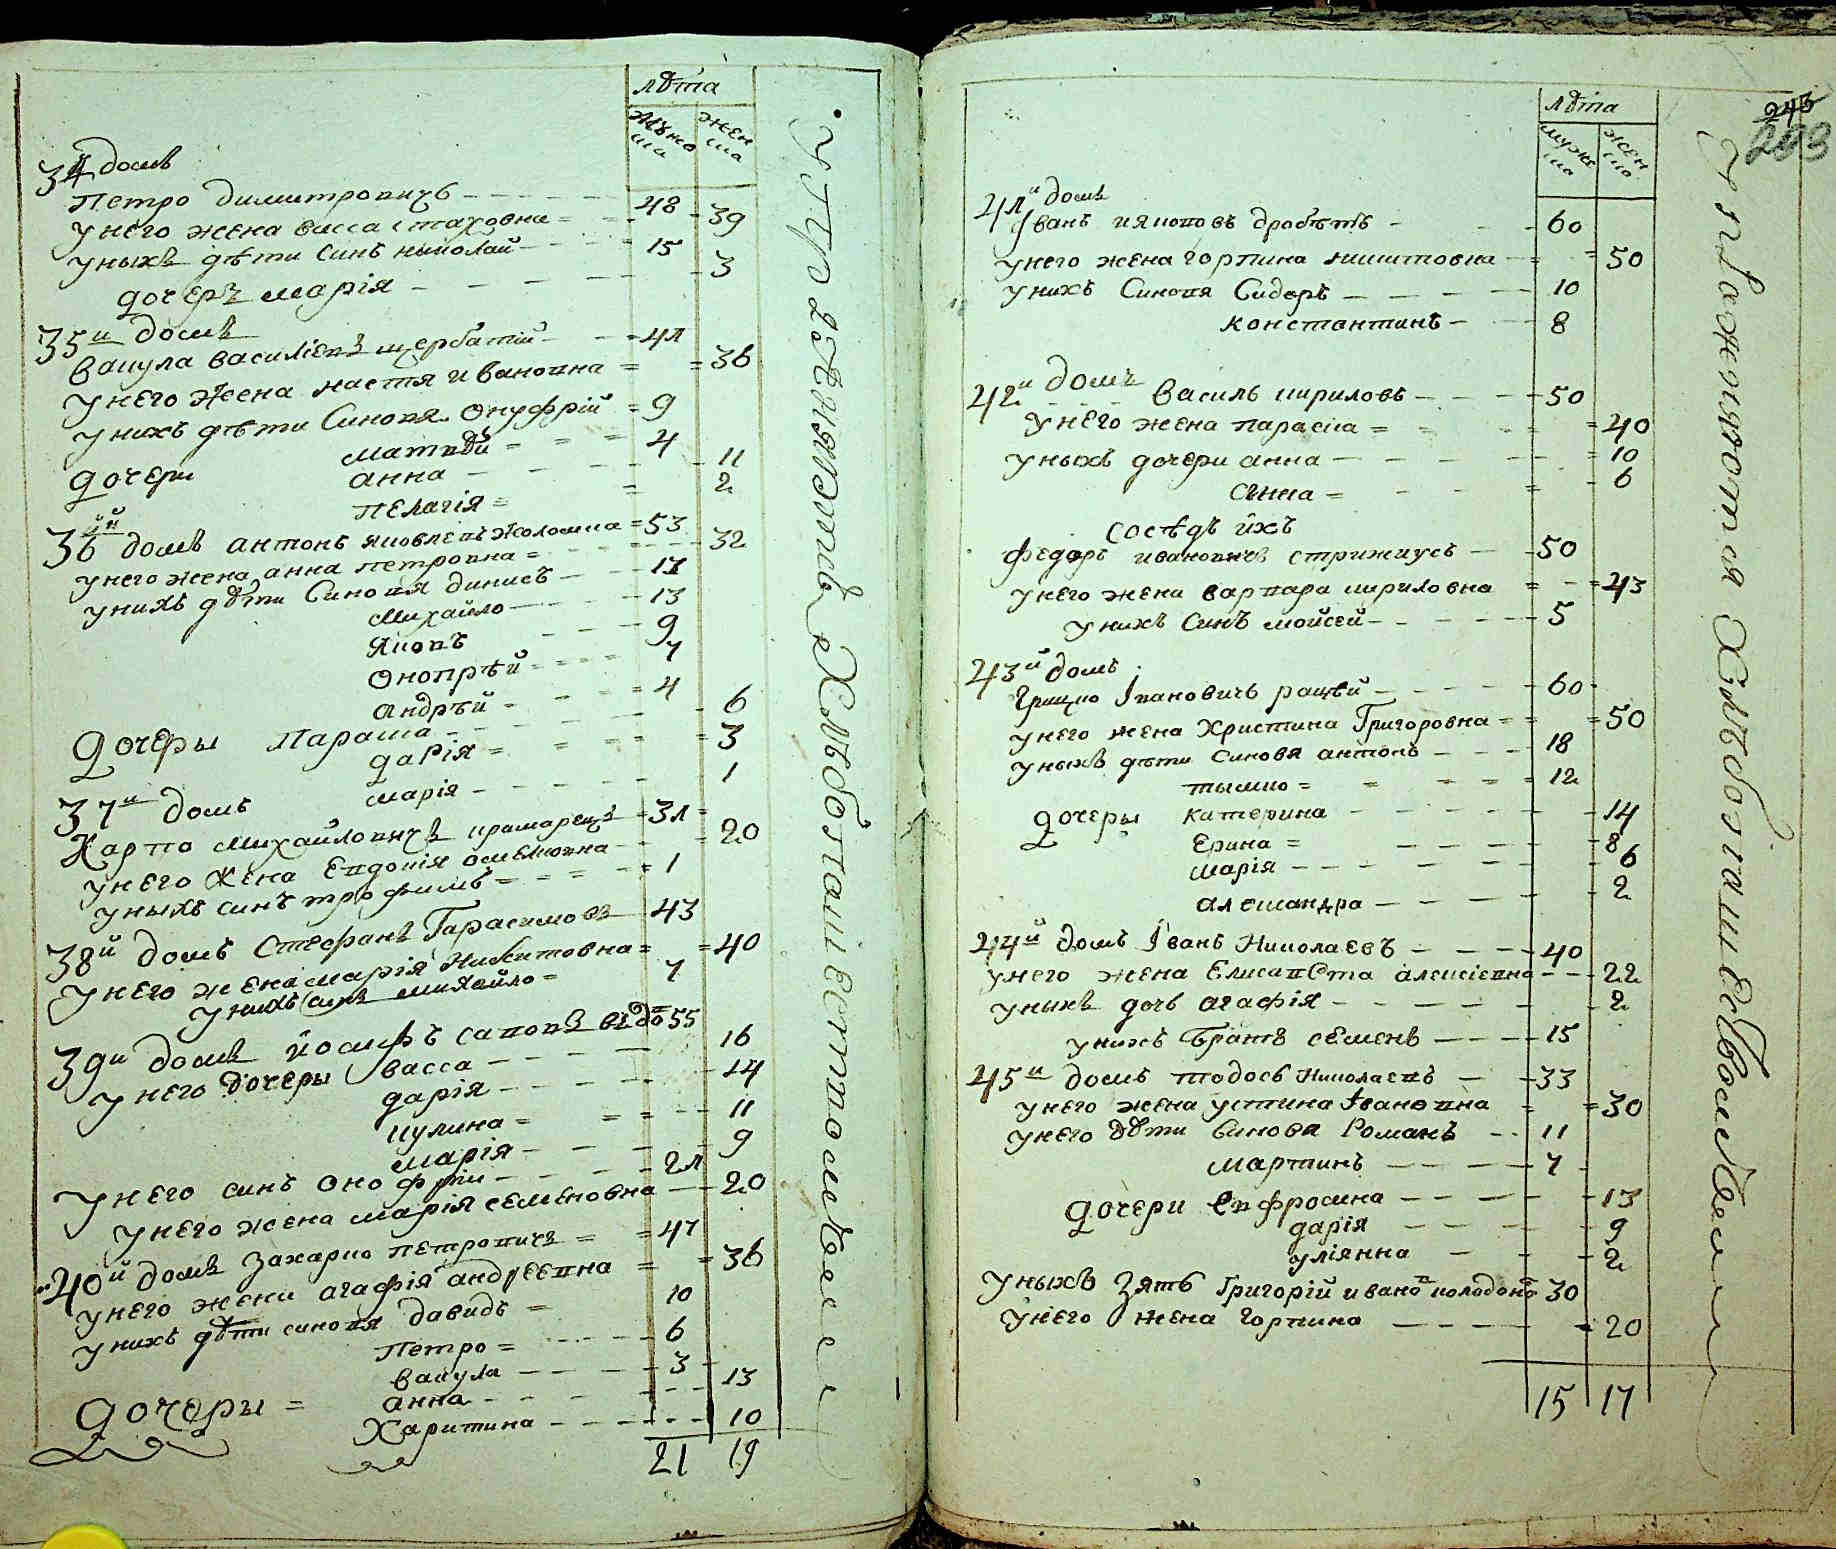 лѣта
мужеска
женска
34 домъ
Петро Димитровичъ 48
у него жена васса стаховна 39
у ныхъ дѣти синъ николай 15
дочерь марія 3
35й домъ
вакула василіевъ щербатій 4л
у него жена настя ивановна 36
у нихъ дѣти синовя Онуфрій 9
матвѣй 4
дочери анна 11
пелагія 2
36й домъ антонъ яковлевъ 53
у него жена анна петровна 32
у нихъ дѣти Синовя динисъ 17
михайло 13
яковъ 9
Онопрѣй 7
андрѣй 4
дочеры Параска 6
дарія 3
марія 1
37й домъ
Карпо Михайловичъ крамарецъ 3л
у него жена Евдокія 20
у ныхъ синъ трофимъ 1
38й домъ Стефанъ Гарасимовъ 43
у него жена марія Никитовна 40
у нихъ синъ михайло 7
39й домъ йосифъ саповъ вдо 55
у него дочеры васса 16
дарія 14
кулина 11
марія 9
у него синъ онофрій 2л
у него жена марія семеновна 20
40й домъ захарко петровичъ 47
у него жена агафія андреевна 36
у нихъ дѣти синовя давидъ 10
Петро 6
вакула 3
дочеры анна 13
Харитина 10
21 19
243
203
лѣта
мужеска
женска
4лй домъ
Іванъ яковов дробѣтъ 60
у него жена горпина никитовна 50
у нихъ Синовя Сидоръ 10
константинъ 8
42й домъ василь кириловъ 50
у него жена параска 40
у ныхъ дочери анна 10
анна 6
сосѣдъ ихъ
федоръ ивановичъ стрижиусъ 50
у него жена варвара кириловна 43
у нихъ Синъ мойсей 5
43й домъ
Грицко Івановичъ рацѣй 60
у него жена Христина Григоровна 50
у ныхъ дѣти синовя антонъ 18
тымко 12
дочеры катерина 14
Ерина 8
марія 6
александра 2
44й домъ Іванъ Николаевъ 40
у него жена Елисавета алексіевна 22
у ныхъ дочь агафія 2
у нихъ братъ семенъ 15
45й домъ тодосъ Николаевъ 33
у него жена устина Івановна 30
у него дѣти Синовя Романъ 11
мартинъ 7
дочери евфросина 13
дарія 9
уліянна 2
у ныхъ зять Григорій ивано колодоно 30
у него жена Горпина 20
15 17